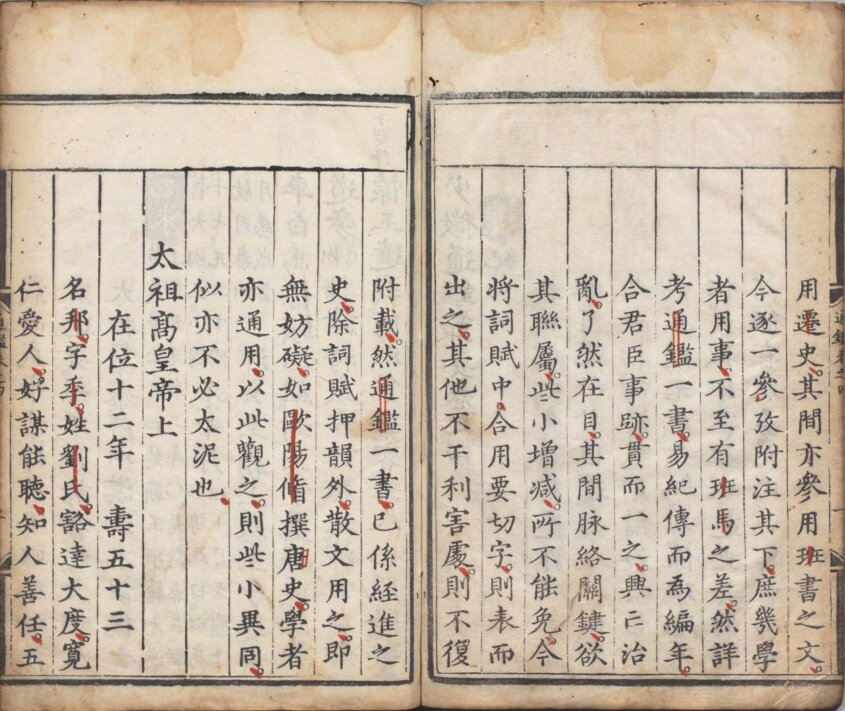 用遷史其間亦參用班書之文
今逐一參攷附注其下庶幾學
者用事不至有班馬之差然詳
考通鑑一書易紀傳而為編年
合君臣事跡貫而一之興亡治
亂了然在目其間脉絡關鍵欲
其聯屬些小增减所不能免今
將詞賦中合用要切字則表而
出之其他不干利害處則不復
附載然通鑑一書已係經進之
史除詞賦押韻外散文用之即
無妨礙如歐陽脩撰唐史學者
亦通用以此觀之則些小異同
似亦不必太泥也
太祖高皇帝上
在位十二年 壽五十三
名邦字季姓劉氏豁達大度寬
仁愛人好謀能聽知人善任五